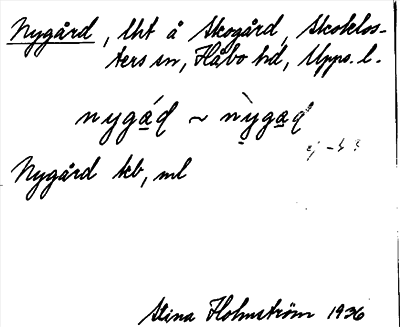 Nygård, lht å Skogård, Skoklos-
ters sn, Håbo hd, Upps. l.
nygá̱d ~ nỳ̱ga̱d
ej
Nygård kb, ml
Stina Holmström 1936